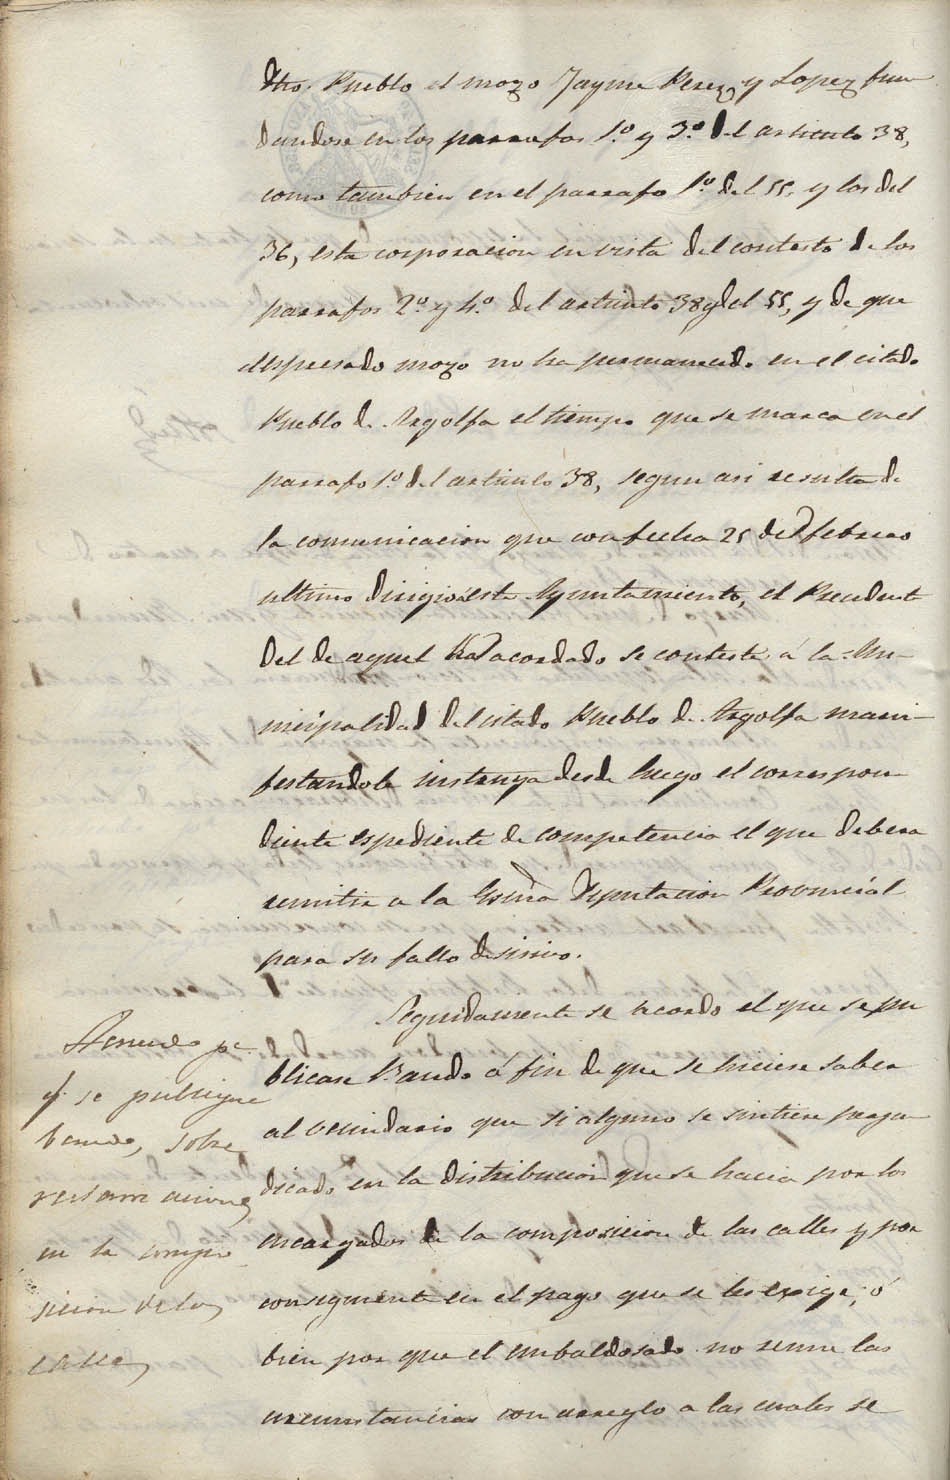 dho. Pueblo el mozo Jayme Perez y Lopez fun-
dandose en los parrafos 1.º y 3.º del articulo 38,
como tambien en el parrafo 1.º del 55, y los del
36, esta corporacion en vista del contesto de los
parrafos 2.º y 4.º del articulo 38 y del 55, y de que
espresado mozo no ha permanecido en el citado
Pueblo de Argolfa el tiempo que se marca en el
parrafo 1.º del articulo 38, segun asi resulta de
la comunicacion que con fecha 25 de febrero
ultimo dirigió á este Ayuntamiento, el Presidente
del de aquel ha acordado se conteste á la Mu-
nicipalidad del citado Pueblo de Argolfa mani-
festandole instruya desde luego el correspon-
diente espediente de competencia el que debera
remitir a la Escma Diputacion Provincial
para su fallo decisivo.
Seguidamente se acordo el que se pu
blicase Bando á fin de que se hiciese saber
al vecindario que si alguno se sintiere perju-
dicado en la distribucion que se hacia por los
encargados de la composicion de las calles y por
consiguiente en el pago que se les exige, ó
bien por que el embaldosado no reune las
circunstancias con arreglo a las cuales se
Acuerdo p.ª
q. se publique
bando, sobre
reclamaciones
en la compo
sicion de las
calles